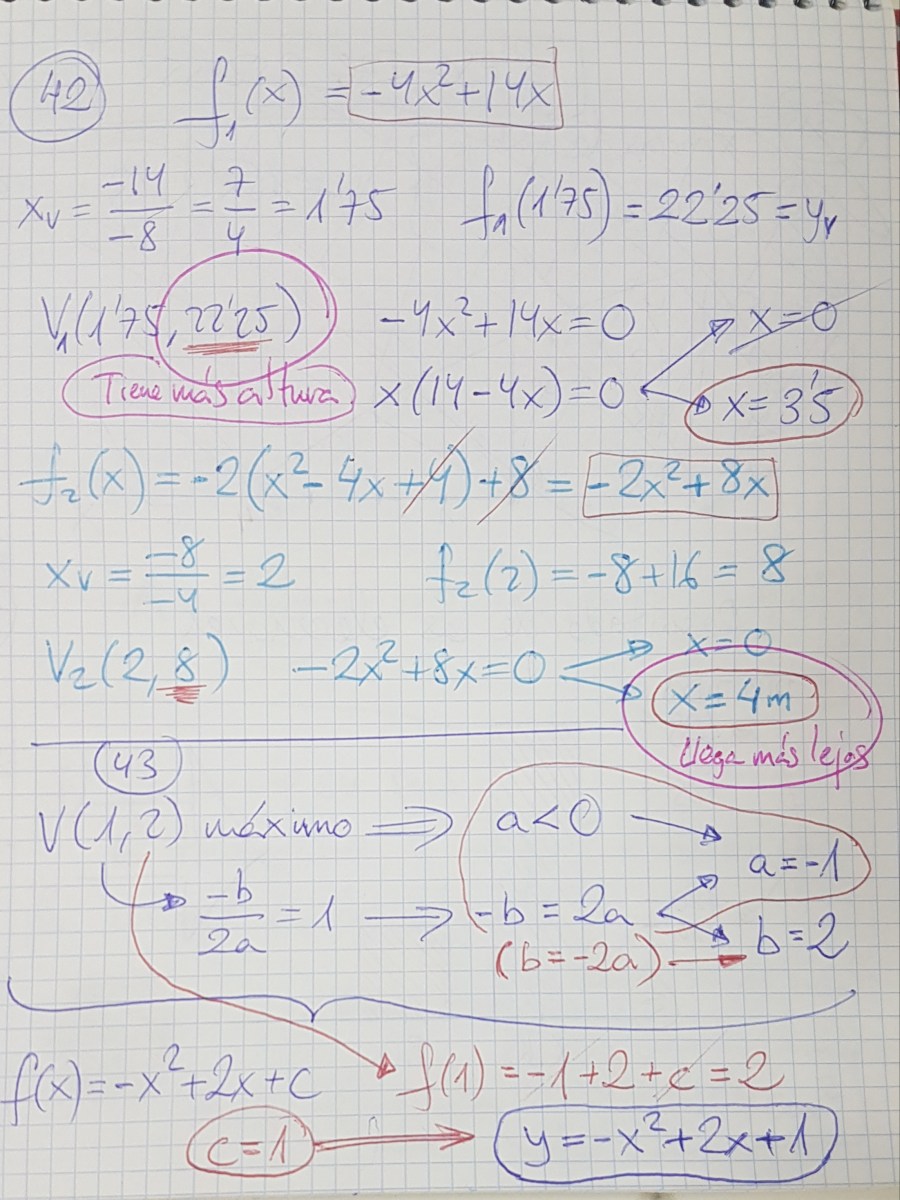 42 f₁(x) = -4x²+14x
xᵥ = -14/-8 = 7/4 = 1'75 f₁(1'75) = 22'25 = yᵥ
V₁(1'75, 22'25) -4x²+14x=0 x=0
Tiene más altura x(14-4x)=0 x=3'5
f₂(x) = -2(x²-4x+4)+8 = -2x²+8x
xᵥ = -8/-4 = 2 f₂(2) = -8+16 = 8
V₂(2, 8) -2x²+8x=0 x=0
x=4m
llega más lejos
43
V(1,2) máximo ⟹ a<0
a=-1
-b/2a = 1 ⟶ -b = 2a
b=2
(b=-2a)
f(x)=-x²+2x+c f(1) = -1+2+c = 2
c=1 y=-x²+2x+1